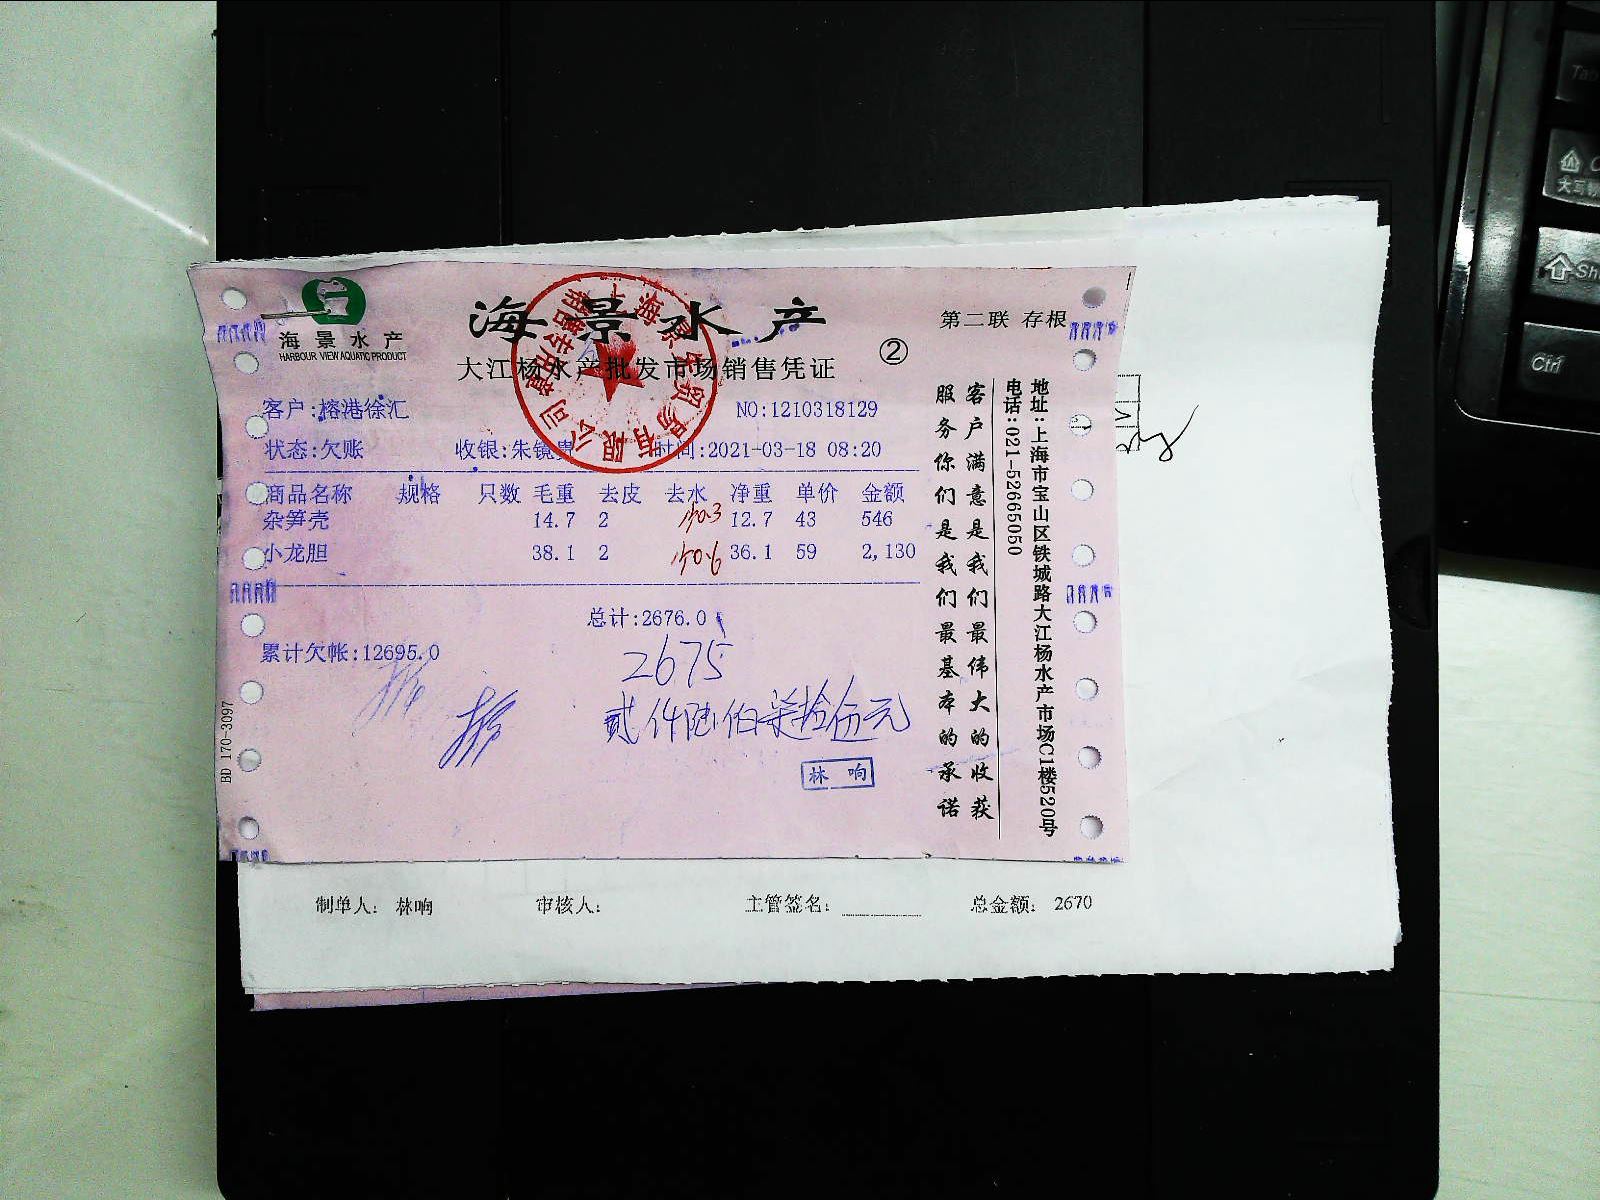 海景水产
HARBOUR VIEW AQUATIC PRODUCT
海景水产
第二联 存根
大江杨水产批发市场销售凭证
②
客户:榕港徐汇
NO:1210318129
状态:欠账 收银:朱镜 时间:2021-03-18 08:20
商品名称 规格 只数 毛重 去皮 去水 净重 单价 金额
杂笋壳 14.7 2 12.7 43 546
小龙胆 38.1 2 36.1 59 2,130
总计:2676.0
累计欠帐:12695.0
2675
贰仟陆佰柒拾伍元
林响
BD 170-3097
客户满意是我们最伟大的收获
服务你们是我们最基本的承诺
地址:上海市宝山区铁城路大江杨水产市场C1楼520号
电话:021-52665050
制单人: 林响 审核人: 主管签名: 总金额: 2670
Tab
大写锁
Shi
Ctrl